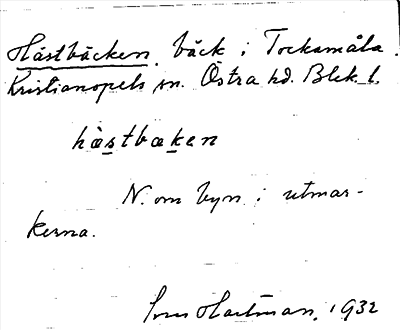 Hästbäcken, bäck i Tocksmåla.
Kristianopels sn. Östra hd. Blek. l.
hàstbæken
N. om byn i utmar-
kerna.
Sven Hartman, 1932